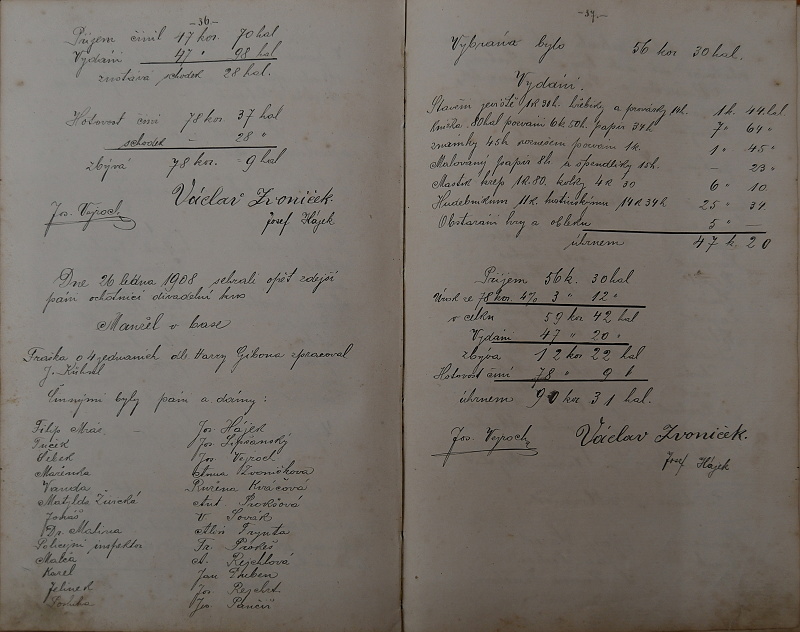 -36-
Příjem činil 17 kor. 70 hal
Vydání 47 " 98 hal
zůstává schodek 28 hal.
Hotovost činí 78 kor. 37 hal
schodek - 28 "
zbývá 78 kor. 9 hal
Václav Zvoníček.
Jos. Vojroch
Josef Hájek
Dne 26 ledna 1908 sehráli opět zdejší
páni ochotníci divadelní hru
Manžel v base
Fraška o 4 jednáních dle Harry Gibona zpracoval
J. Kühnl
Činnými byly páni a dámy:
Filip Mráz Jos. Hájek
Jos.
Jos. Vojroch
Mařenka Anna Zvoníčkova
Vanda Růžena
Matylda Ant. Prokšová
V. Novák
Dr. Malina Alois
Policejní inspektor Fr. Prokeš
A. Rejchlová
Karel Jan
Jos. Rejchrt
Jos.
-37-
Vybráno bylo 56 kor 30 hal.
Vydání.
Stavění jeviště 1K 30h. hřebíky a provázky 14h. 1k. 44 hal.
Knížka, 80hal pozvání 6k 50h. papír 34h 7 " 64 "
známky 45h roznešení pozvání 1k. 1 " 45 "
Malovaný papír 8h. a špendlíky 15h. - 23 "
Mastix krep 1K.80. kolky 4K 30 6 " 10
Hudebníkům 11K. hostinskému 14K 34h 25 " 34
Obstarání hry a obleků 5 " -
úhrnem 47 k. 20
Příjem 56 k. 30 hal
Úrok ze 78 kor. 4% 3 " 12 "
v celku 59 kor 42 hal
Vydání 47 " 20 "
zbývá 12 kor 22 hal
Hotovost činí 78 " 9 h
úhrnem 90 kor 31 hal.
Jos. Vojroch
Václav Zvoníček.
Josef Hájek